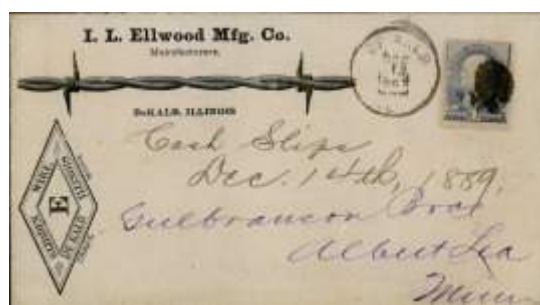 I. L. Ellwood Mfg. Co.
Manufacturers,
DeKALB, ILLINOIS
DE KALB
DEC
13
Cash Slips
Dec. 14th, 1889.
Gulbranson Bros
Albert Lea
Minn
E
DE KALB